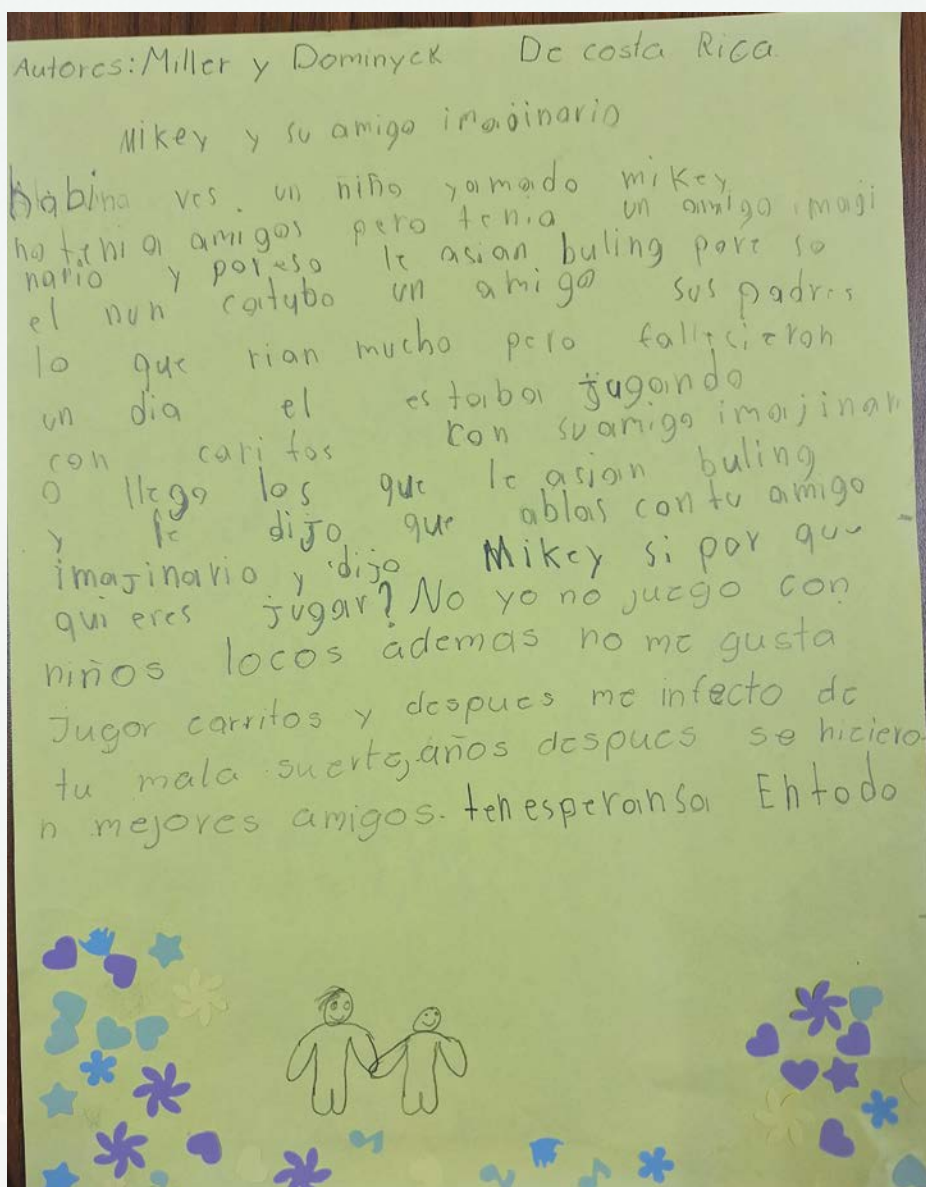 Autores: Miller y Dominyck De costa Rica.
Mikey y su amigo imajinario
habina ves. un niño yamado mikey
no tenia amigos pero tenia un amigo imagi
nario y poreso le asian buling pore so
el nun catubo un amigo sus padres
lo que rian mucho pero fallicieron
un dia el estaba jugando
con caritos con suamigo imajinari
o llego los que le asian buling
y le dijo que ablas con tu amigo
imajinario y dijo Mikey si por que
quieres jugar? No yo no juego con
niños locos ademas no me gusta
Jugar carritos y despues me infecto de
tu mala suerte, años despues se hiciero
n mejores amigos. ten esperansa En todo